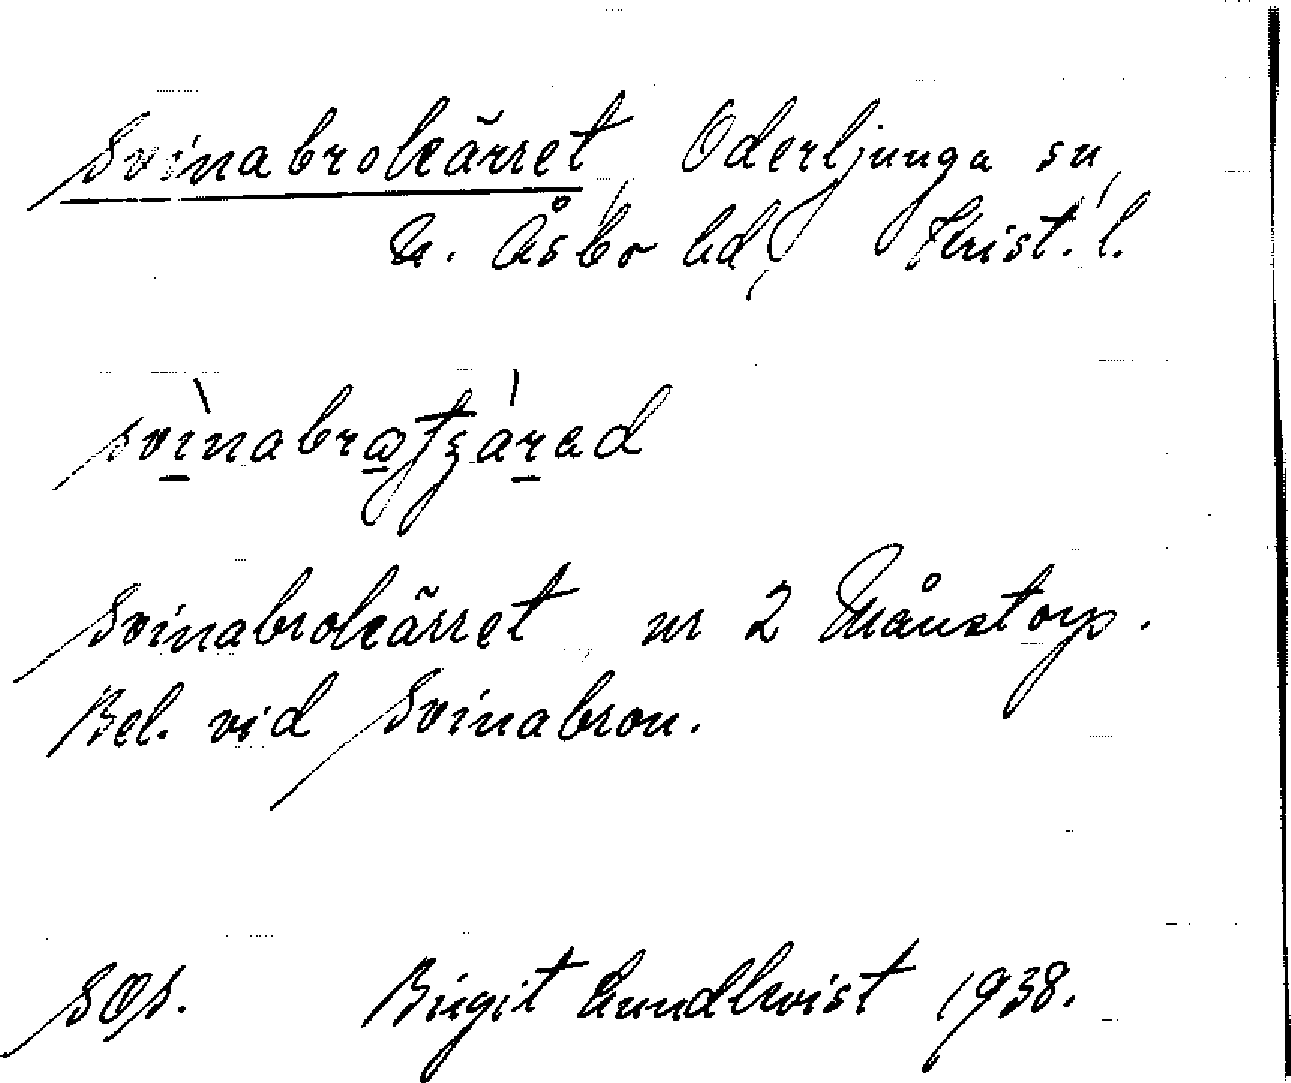 Svinabrokärret, Oderljunga sn,
N. Åsbo hd, Krist. l.
Svinabrokärret nr 2 Månstorp.
Bel. vid Svinabron.
Birgit Lundkvist 1938.